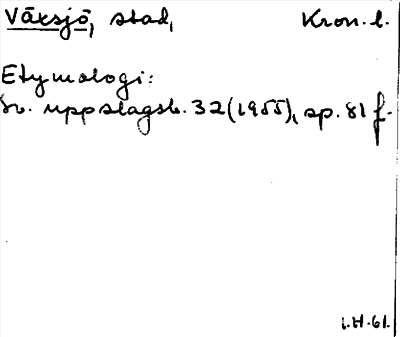 Växsjö, stad, Kron. l.
Etymologi:
Sv. uppslagsb. 32 (1955), sp. 81 f.
i.H.61.